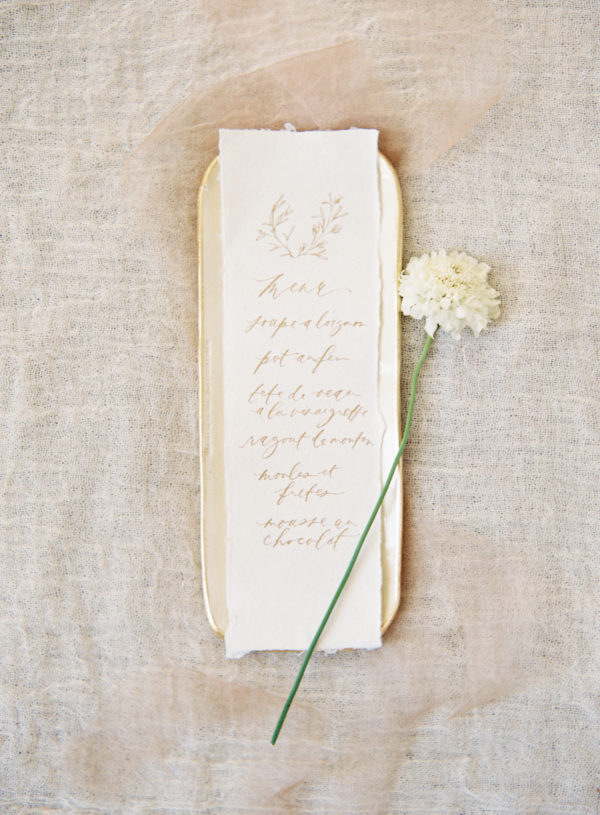 Menu
soupe a l'oignon
pot au feu
tete de veau
a la vinaigrette
ragout de mouton
moules et
frites
mousse au
chocolat